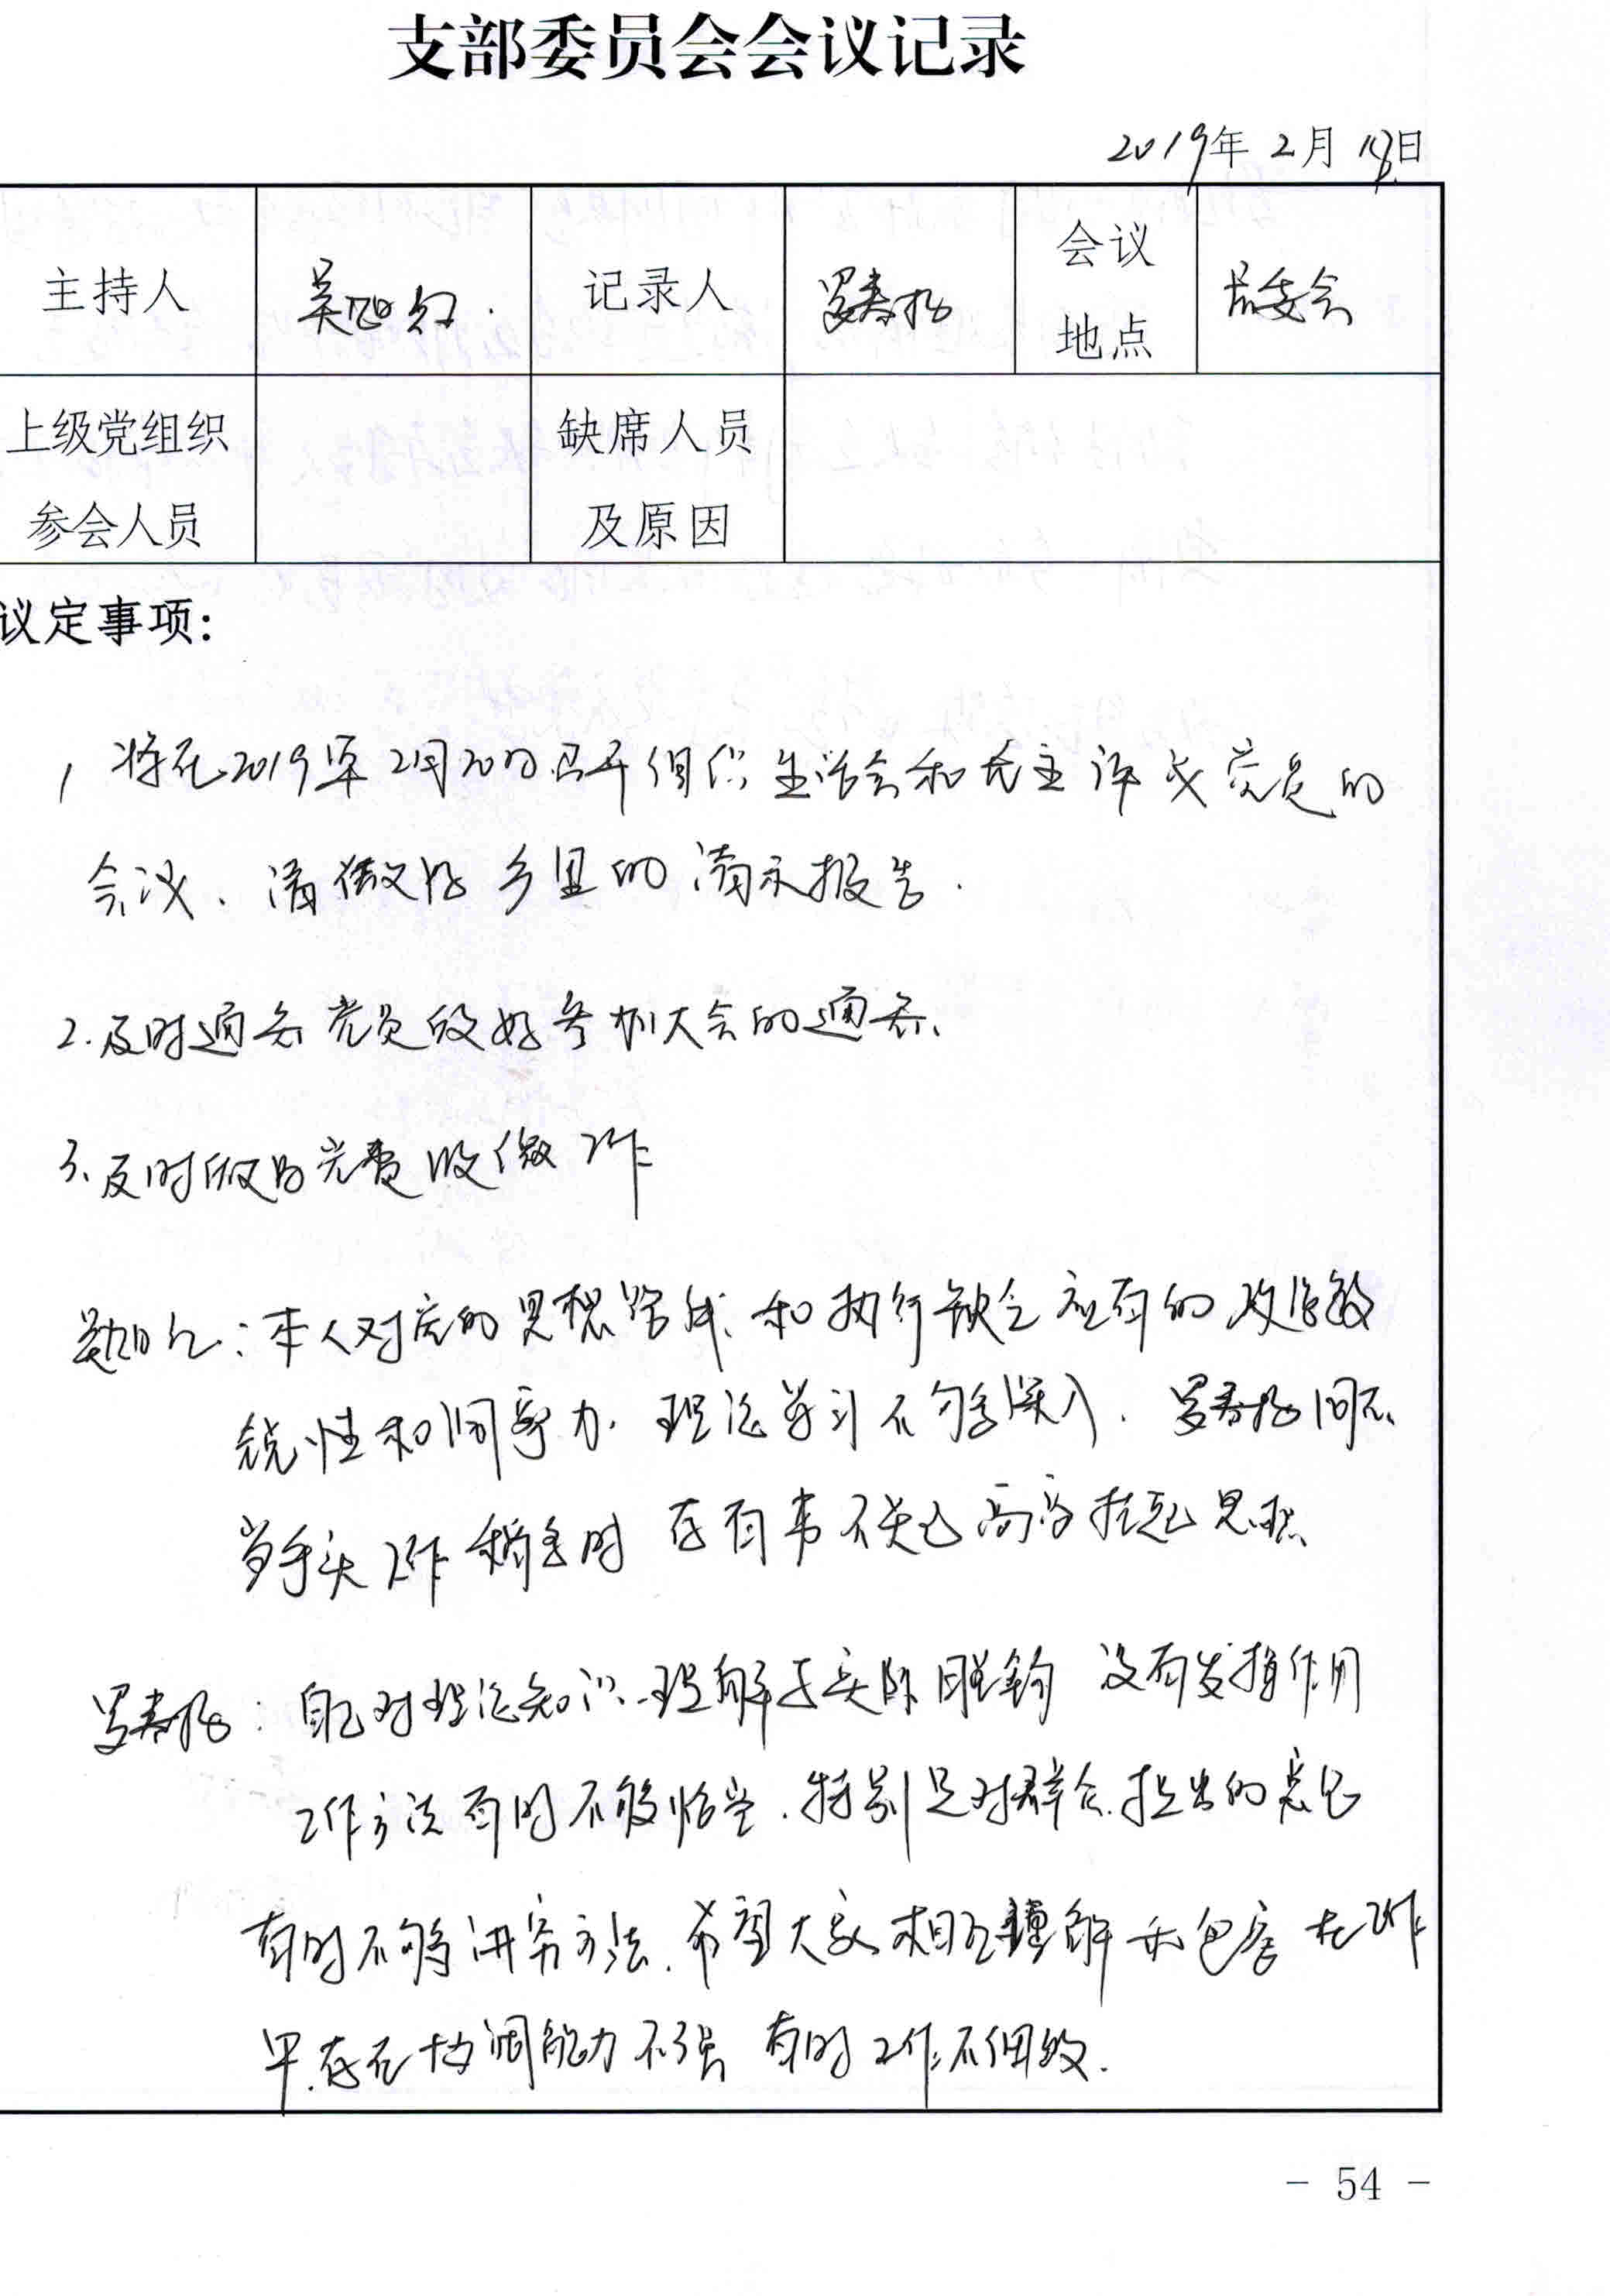 支部委员会会议记录
2019年2月18日
主持人 吴旭红 记录人 罗春梅 会议地点 居委会
上级党组织参会人员 缺席人员及原因
议定事项:
1、将在2019年2月20日召开组织生活会和民主评议党员的
会议、请做好乡里的请示报告.
2.及时通知党员做好参加大会的通知、
3、及时做好党费收缴工作
吴旭红:本人对党的思想路线和执行缺乏应有的政治敏
锐性和洞察力.理论学习不够深入.罗春梅同志
当手头工作稍多时 存有事不关己高高挂起思想、
罗春梅:自己对理论知识、理解与实际脱钩 没有发挥作用
工作方法有时不够恰当.特别是对群众提出的意见
有时不够讲究方法.希望大家相互理解和包容 在工作
中.存在协调能力不强 有时工作不细致.
- 54 -